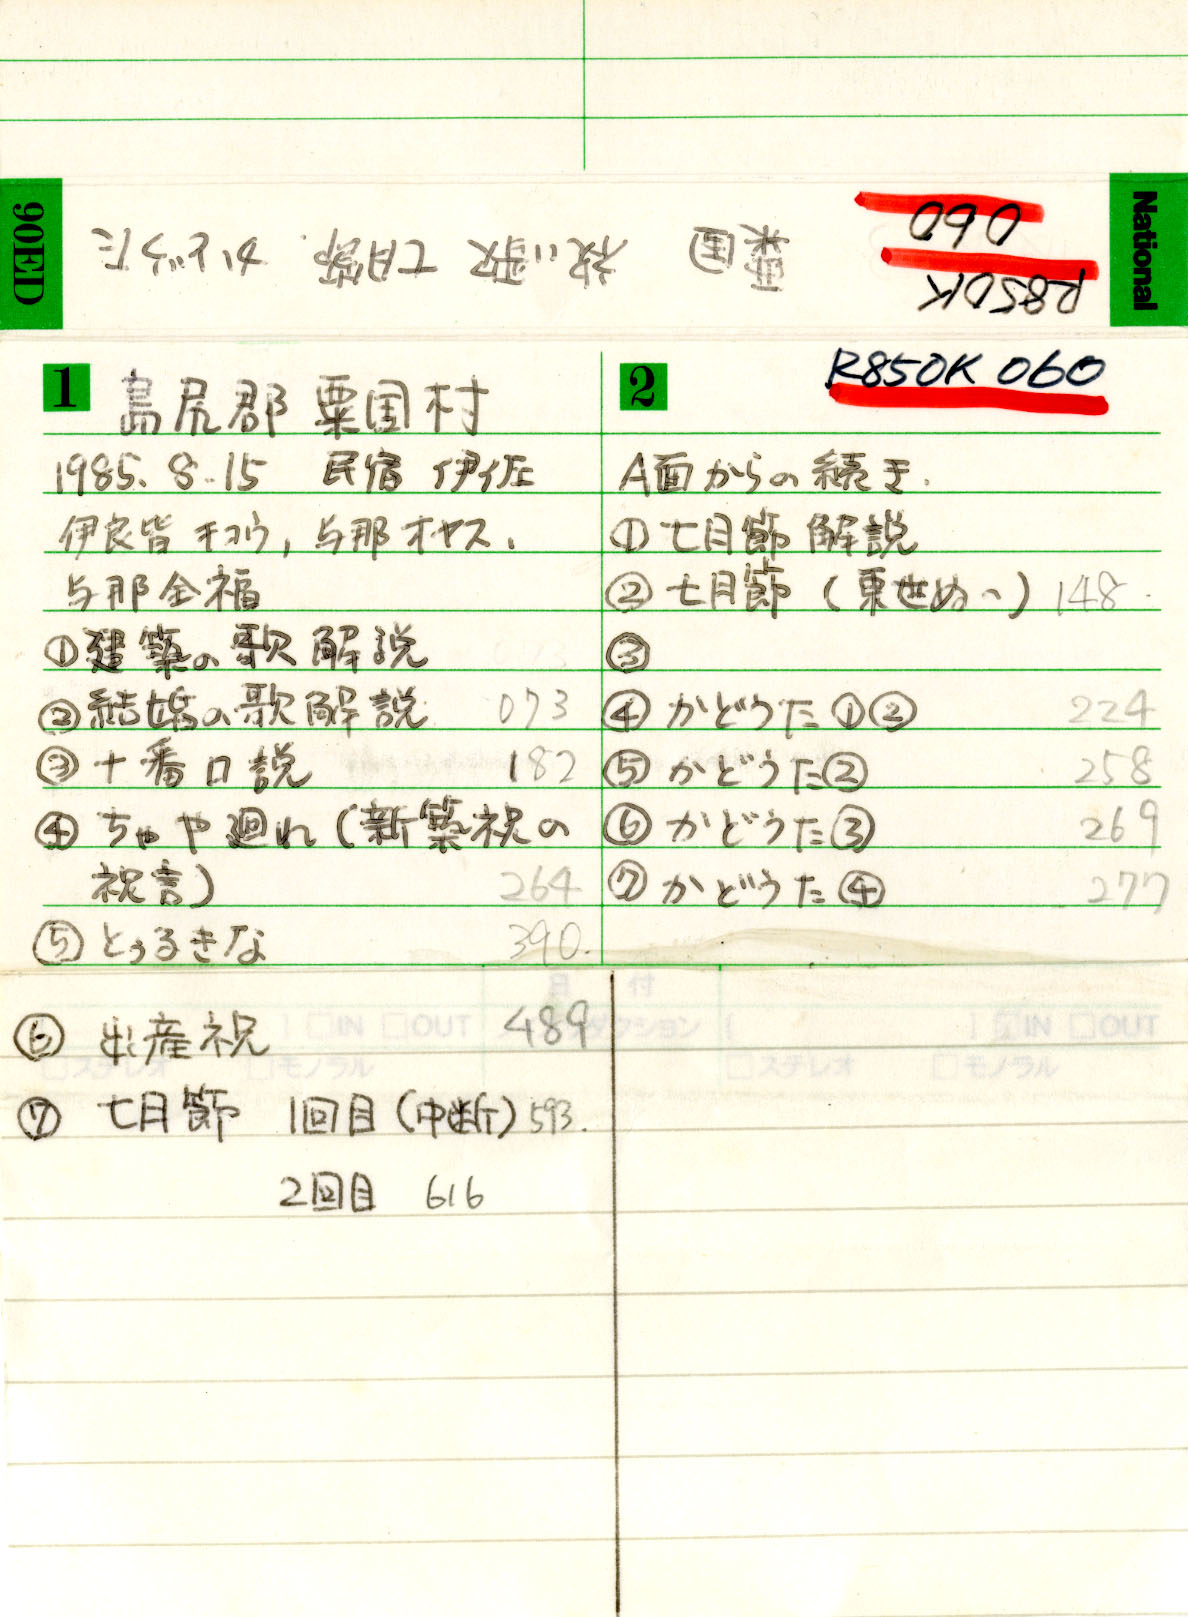 90ED
National
粟国 祝い歌 七月節 かどうた
R850K
060
1
島尻郡 粟国村
1985.8.15 民宿 伊佐
伊良皆 チヨウ, 与那 オヤス.
与那全福
①建築の歌 解説
②結婚の歌 解説 073
③十番口説 182
④ちゃや廻れ(新築祝の
祝言) 264
⑤とぅるきな 390.
⑥ 出産祝 489
⑦ 七月節 1回目(中断) 593.
2回目 616
2
R850K 060
A面からの続き.
①七月節 解説
②七月節 (東世ぬ〜) 148.
③
④かどうた①② 224
⑤かどうた② 258
⑥かどうた③ 269
⑦かどうた④ 277
日 付
IN OUT
ダクション
IN OUT
ステレオ モノラル
ステレオ モノラル